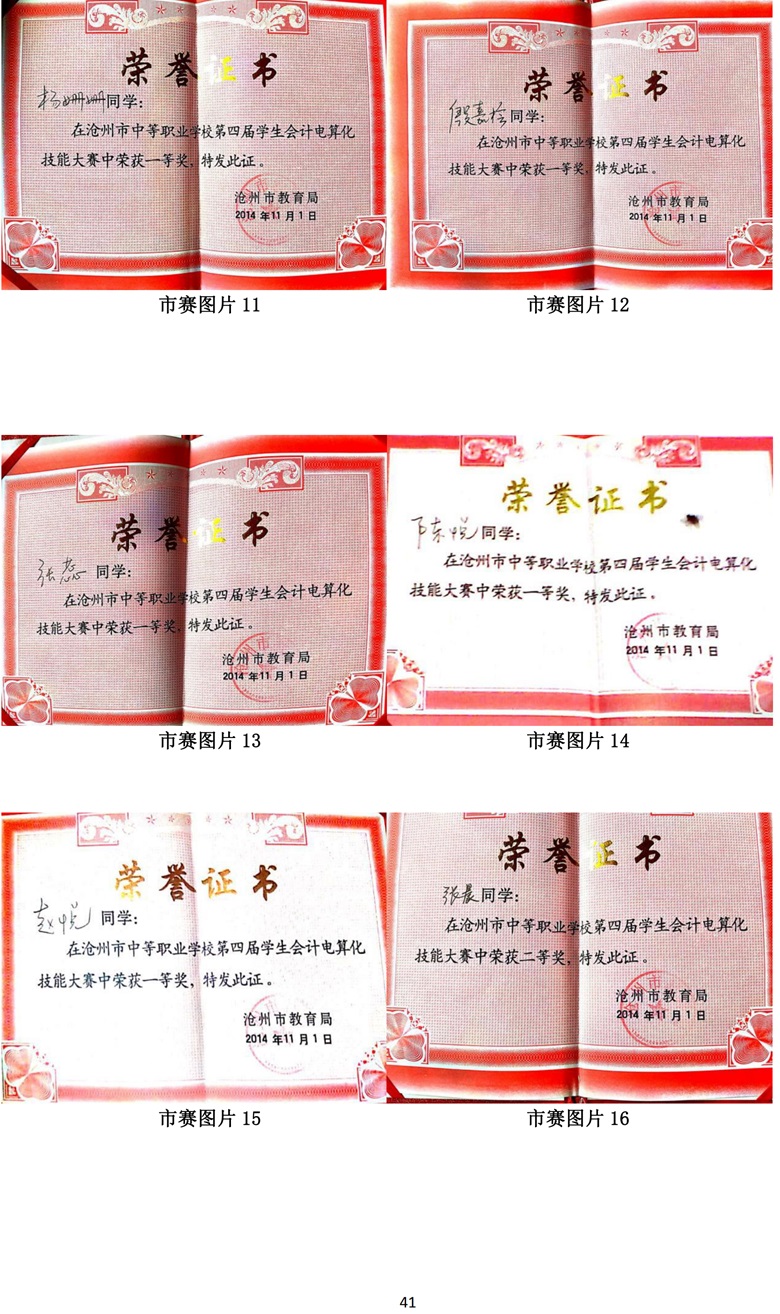 荣誉证书
杨姗姗同学：
在沧州市中等职业学校第四届学生会计电算化
技能大赛中荣获一等奖，特发此证。
沧州市教育局
2014年11月1日
市赛图片 11
荣誉证书
同学：
在沧州市中等职业学校第四届学生会计电算化
技能大赛中荣获一等奖，特发此证。
沧州市教育局
2014年11月1日
市赛图片 12
荣誉证书
张蕊 同学：
在沧州市中等职业学校第四届学生会计电算化
技能大赛中荣获一等奖，特发此证。
沧州市教育局
2014年11月1日
市赛图片 13
荣誉证书
同学：
在沧州市中等职业学校第四届学生会计电算化
技能大赛中荣获一等奖，特发此证。
沧州市教育局
2014年11月1日
市赛图片 14
荣誉证书
赵悦 同学：
在沧州市中等职业学校第四届学生会计电算化
技能大赛中荣获一等奖，特发此证。
沧州市教育局
2014年11月1日
市赛图片 15
荣誉证书
张晨同学：
在沧州市中等职业学校第四届学生会计电算化
技能大赛中荣获二等奖，特发此证。
沧州市教育局
2014年11月1日
市赛图片 16
41